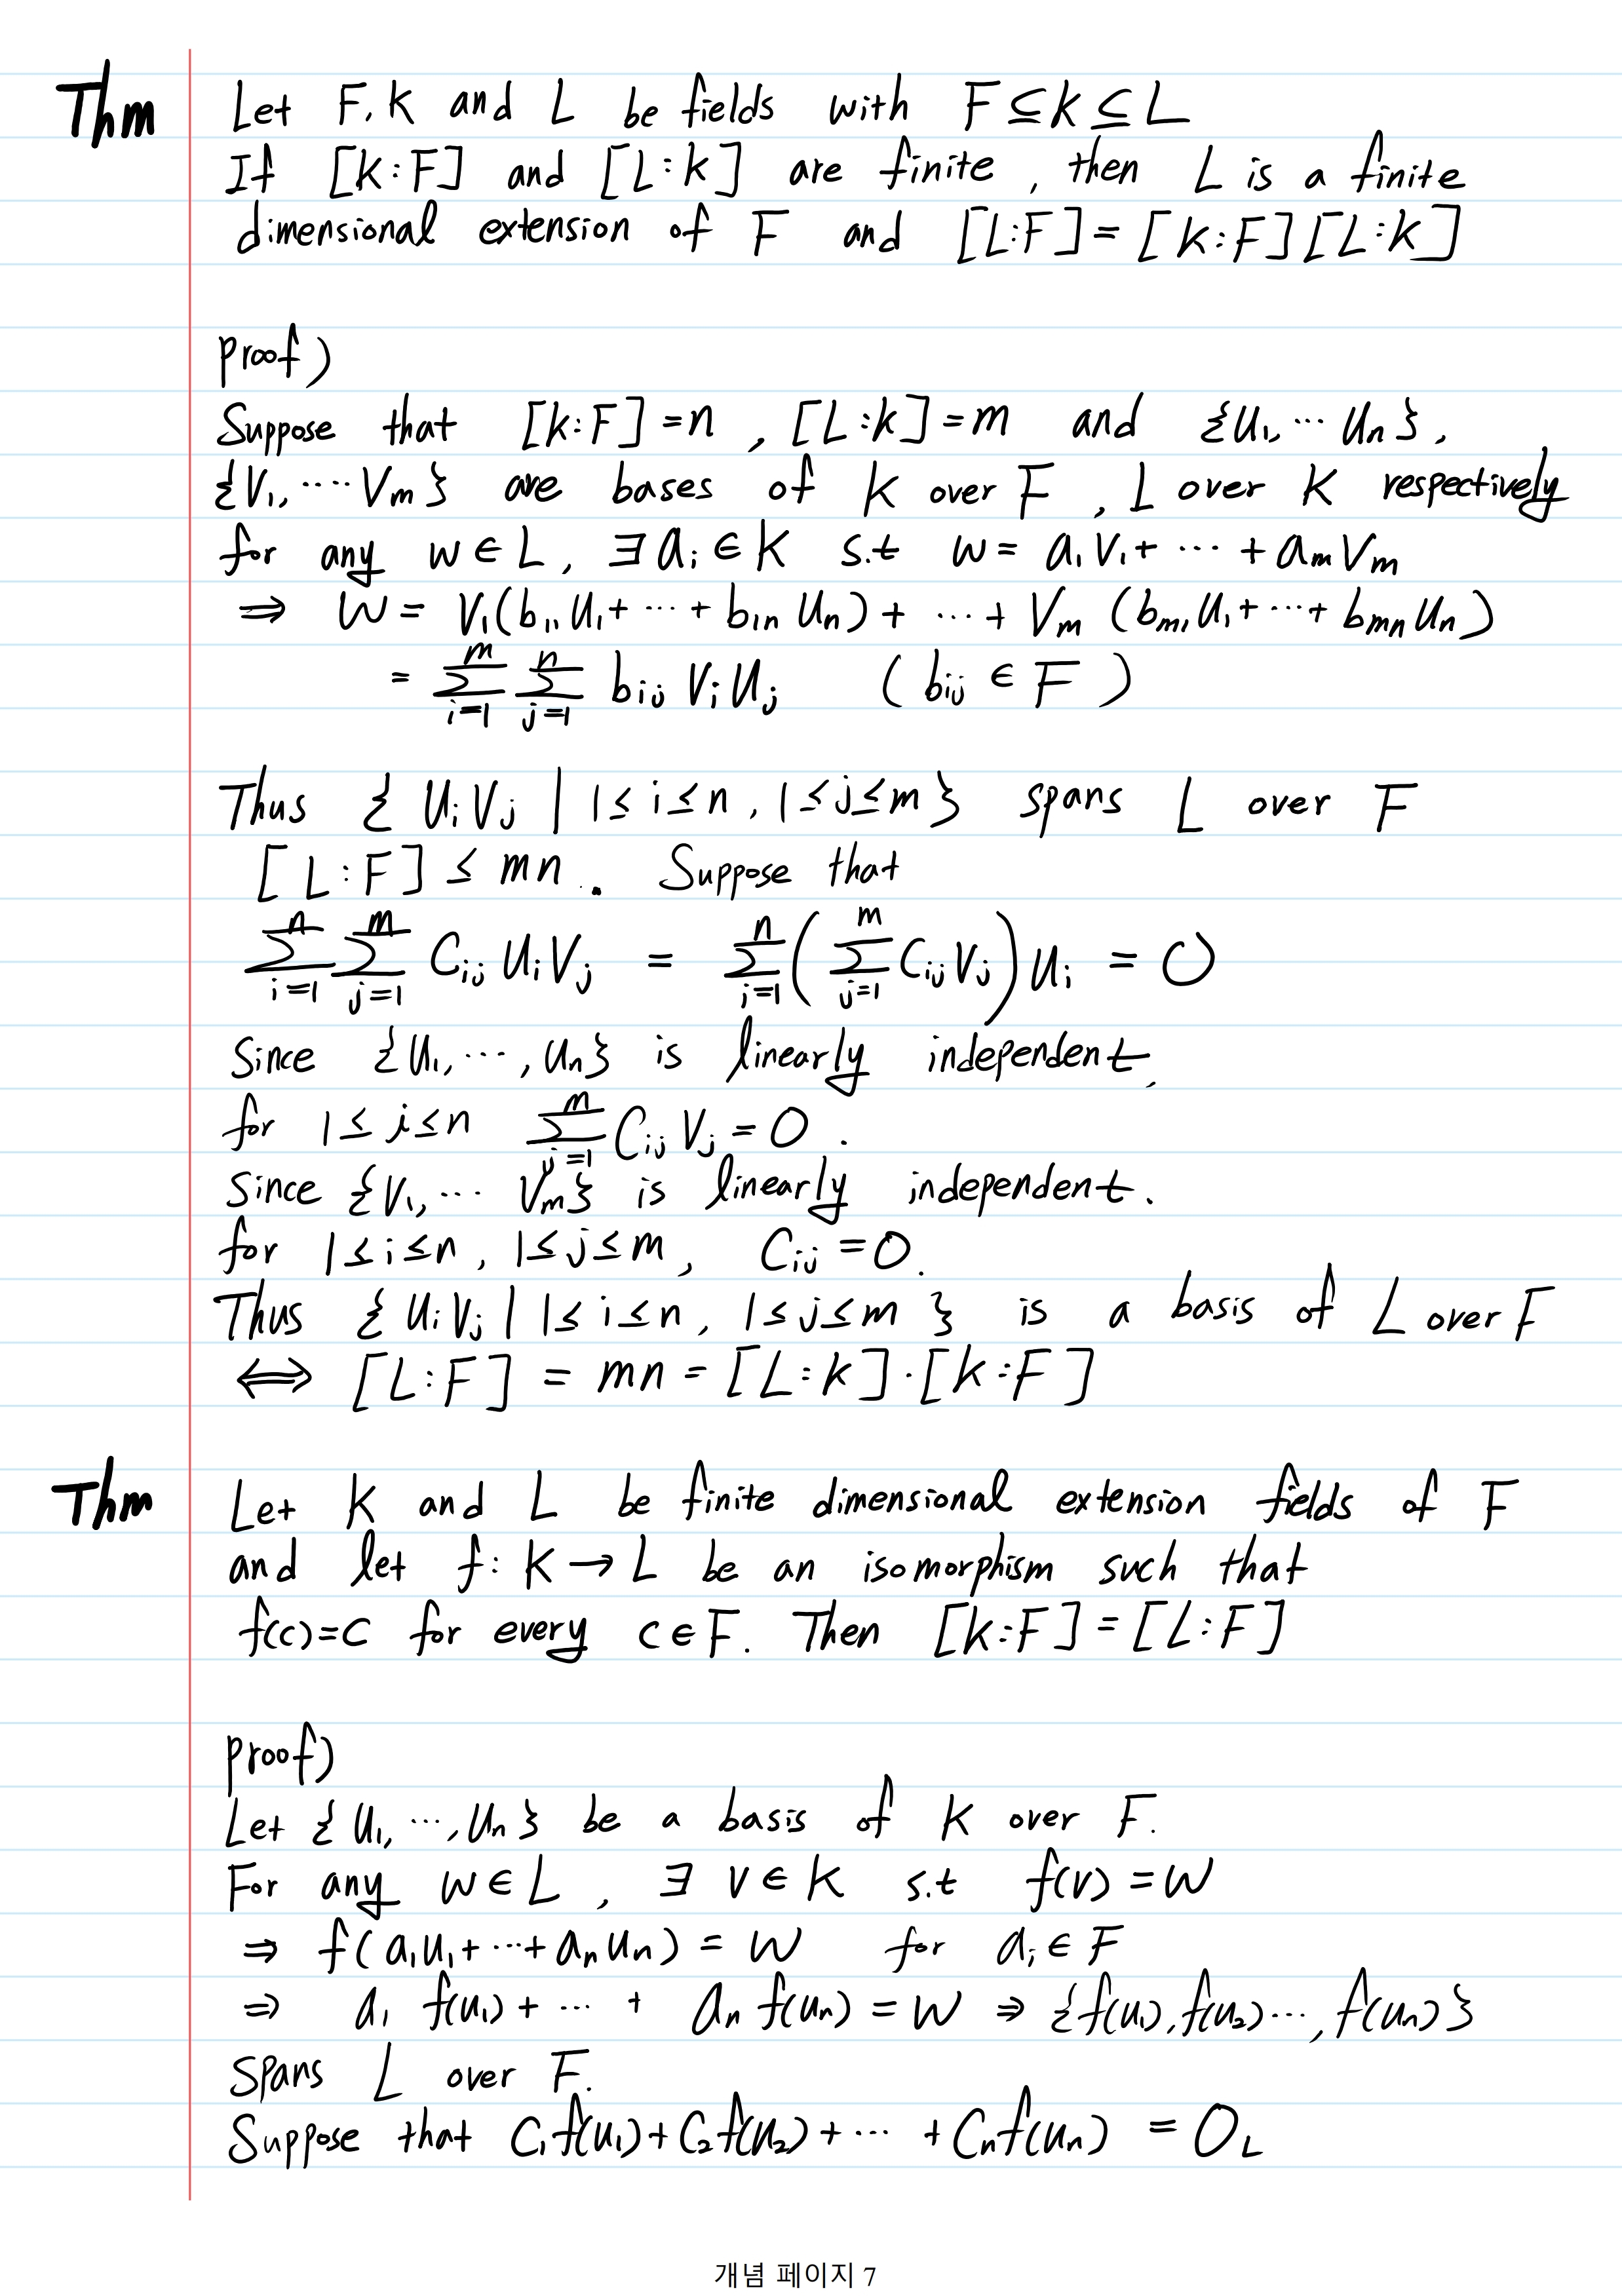 Thm Let F, K and L be fields with F ⊆ K ⊆ L
If [K:F] and [L:K] are finite, then L is a finite
dimensional extension of F and [L:F] = [K:F][L:K]
proof)
Suppose that [K:F] = n, [L:K] = m and {u₁, ⋯ uₙ},
{v₁, ⋯ vₘ} are bases of K over F, L over K respectively
for any w ∈ L, ∃ aᵢ ∈ K s.t w = a₁v₁ + ⋯ + aₘvₘ
⇒ w = v₁(b₁₁u₁ + ⋯ + b₁ₙuₙ) + ⋯ + vₘ(bₘ₁u₁ + ⋯ + bₘₙuₙ)
= ∑_{i=1}^{m} ∑_{j=1}^{n} b_{ij} v_i u_j (b_{ij} ∈ F)
Thus {u_i v_j | 1 ≤ i ≤ n, 1 ≤ j ≤ m} spans L over F
[L:F] ≤ mn. Suppose that
∑_{i=1}^{n} ∑_{j=1}^{m} C_{ij} u_i v_j = ∑_{i=1}^{n} (∑_{j=1}^{m} C_{ij} v_j) u_i = 0
Since {u₁, ⋯, uₙ} is linearly independent,
for 1 ≤ i ≤ n ∑_{j=1}^{m} C_{ij} v_j = 0.
Since {v₁, ⋯ vₘ} is linearly independent.
for 1 ≤ i ≤ n, 1 ≤ j ≤ m, C_{ij} = 0.
Thus {u_i v_j | 1 ≤ i ≤ n, 1 ≤ j ≤ m} is a basis of L over F
⟺ [L:F] = mn = [L:K]·[K:F]
Thm Let K and L be finite dimensional extension fields of F
and let f: K → L be an isomorphism such that
f(c) = c for every c ∈ F. Then [K:F] = [L:F]
proof)
Let {u₁, ⋯, uₙ} be a basis of K over F.
For any w ∈ L, ∃ v ∈ K s.t f(v) = w
⇒ f(a₁u₁ + ⋯ + aₙuₙ) = w for aᵢ ∈ F
⇒ a₁ f(u₁) + ⋯ + aₙ f(uₙ) = w ⇒ {f(u₁), f(u₂) ⋯, f(uₙ)}
Spans L over F.
Suppose that C₁f(u₁) + C₂f(u₂) + ⋯ + Cₙf(uₙ) = 0_L
개념 페이지 7